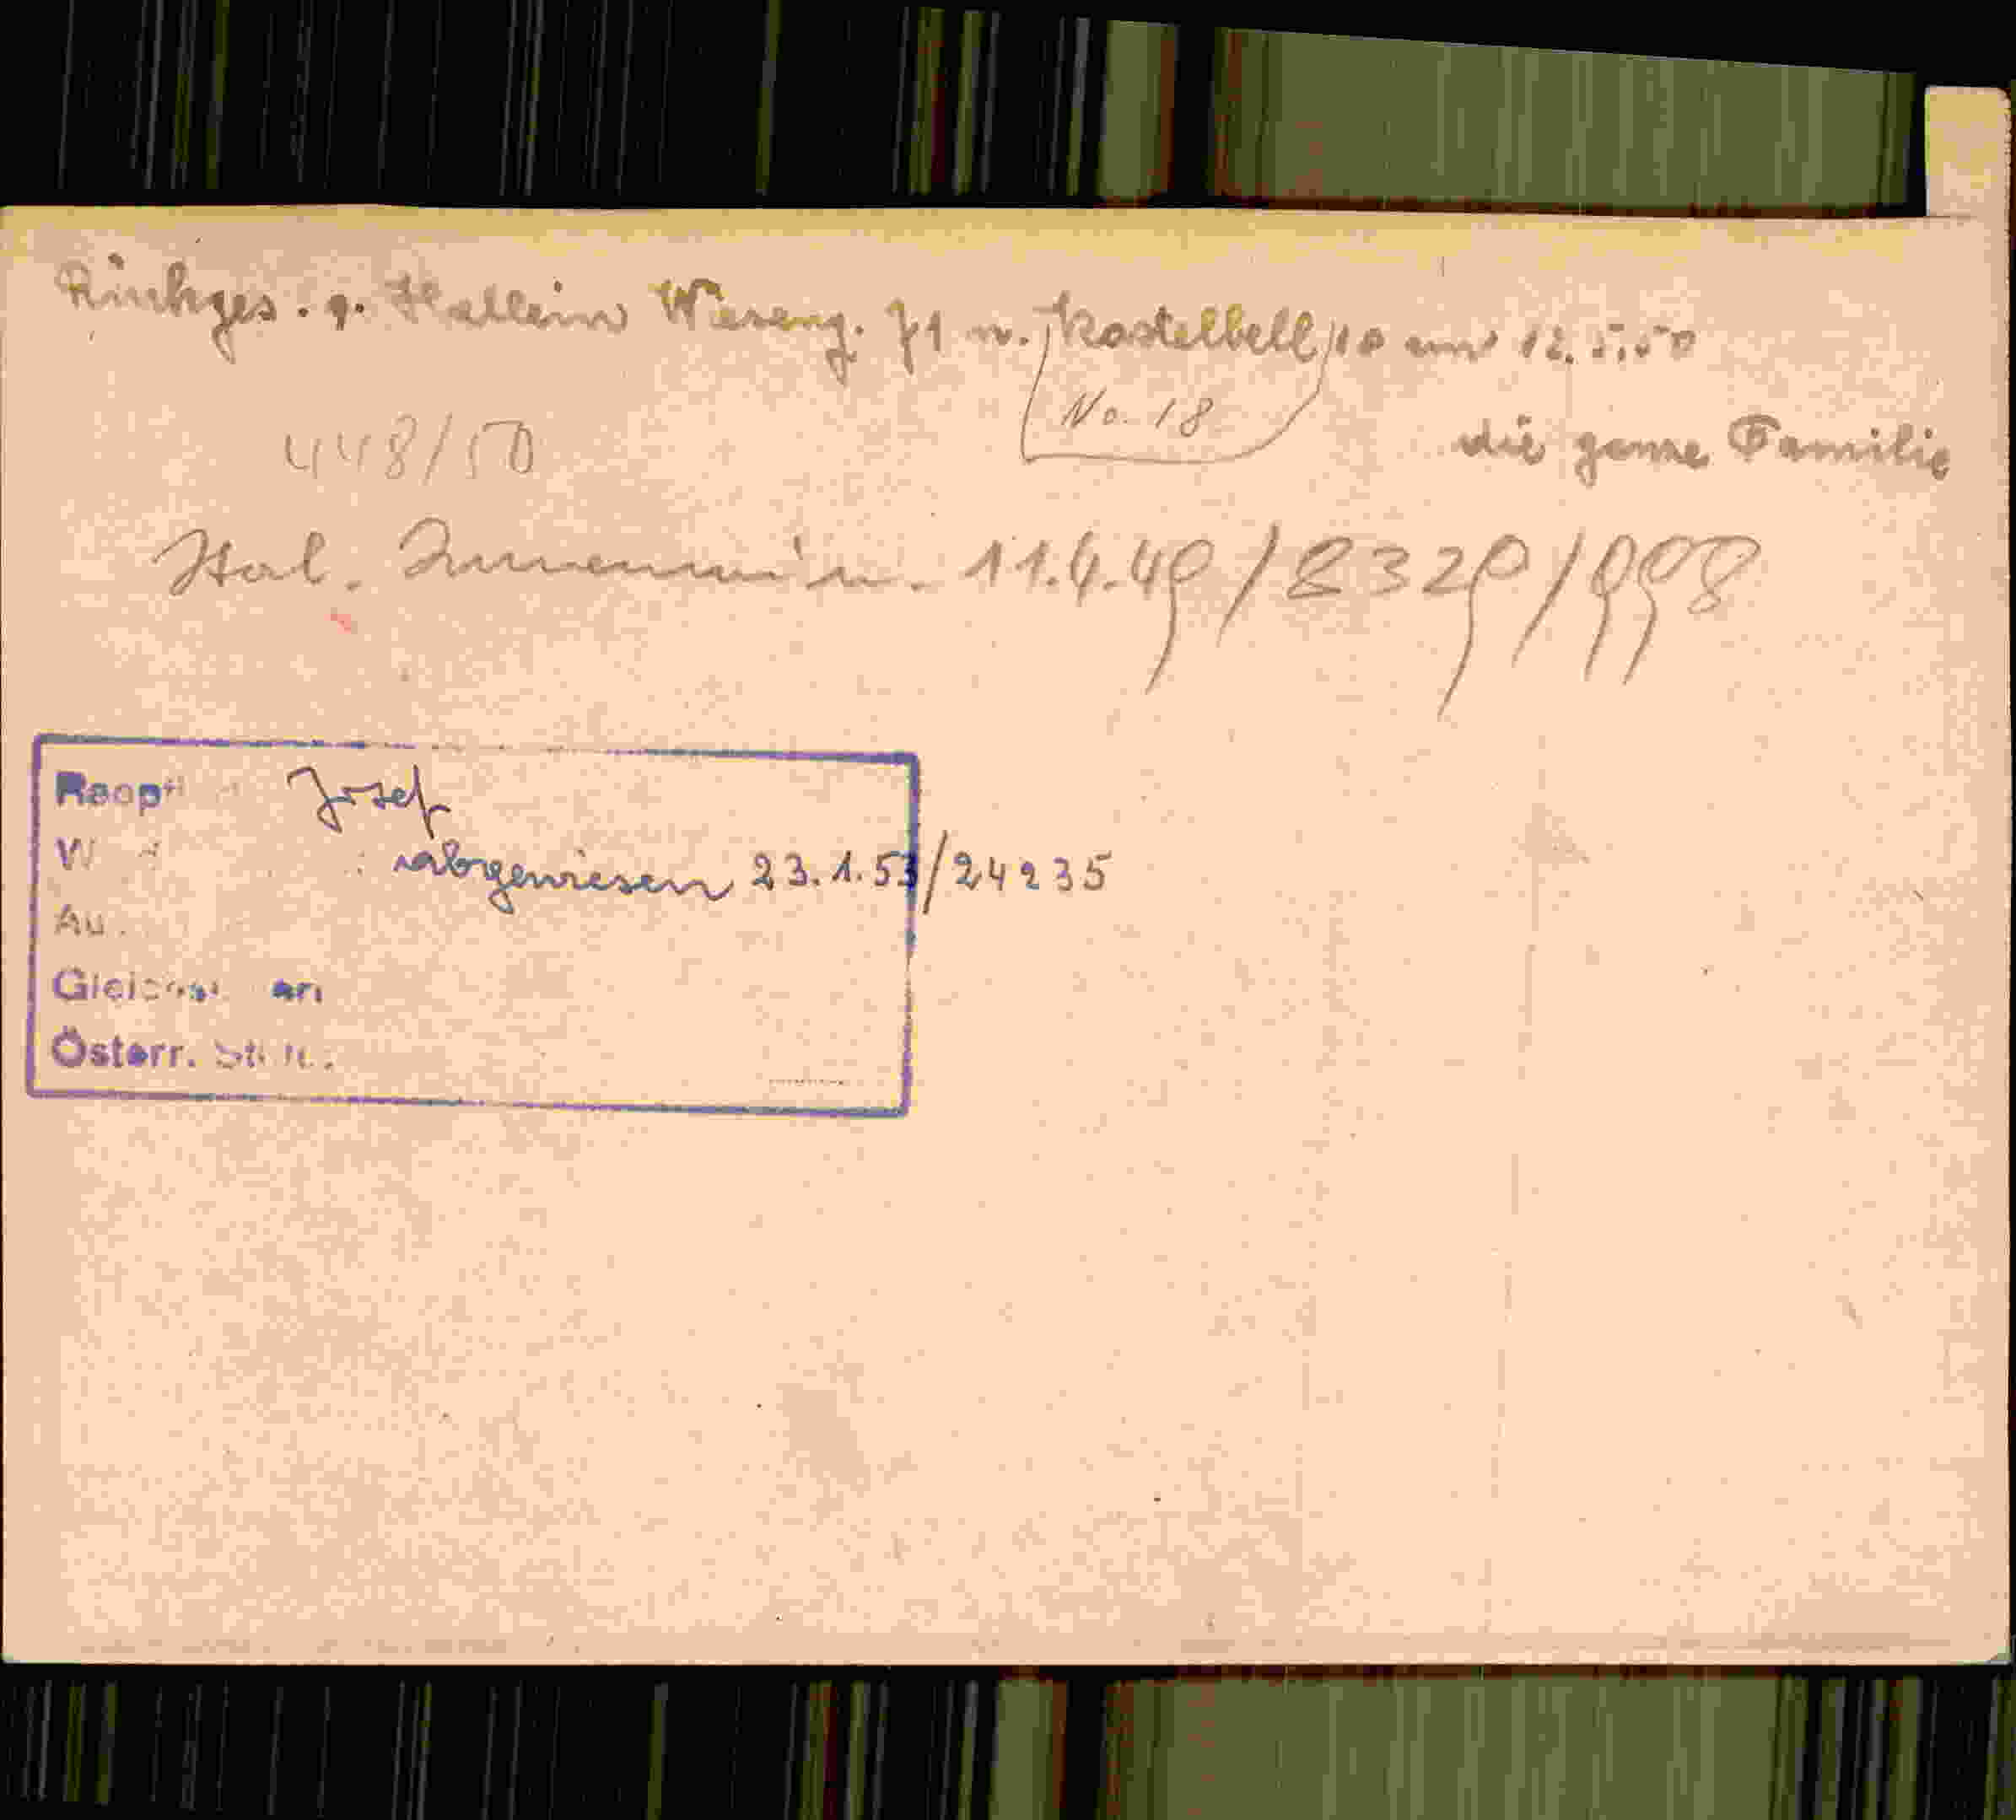 Rückges. v. Hallein Wieseng. 71 n. Kastelbell 10 am 12.5.50
No. 18
448/50
die ganze Familie
Ital. Innenmin. 11.4.49/2329/998
Reopt Josef
abgewiesen 23.1.53/24235
Österr.